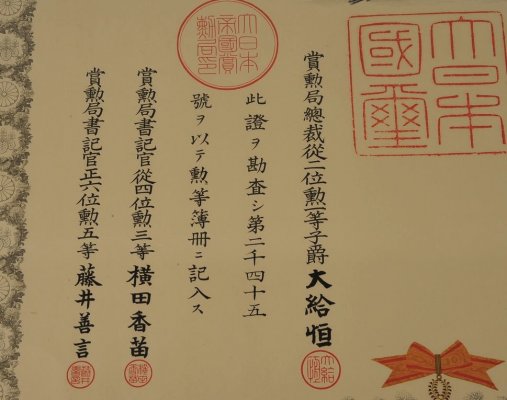 大日本
國璽
賞勲局總裁從二位勲一等子爵大給恒
大給恒
此證ヲ勘査シ第二千四十五
號ヲ以テ勲等簿册ニ記入ス
大日本
帝國賞
勲局印
賞勲局書記官從四位勲三等横田香苗
賞勲局書記官正六位勲五等藤井善言